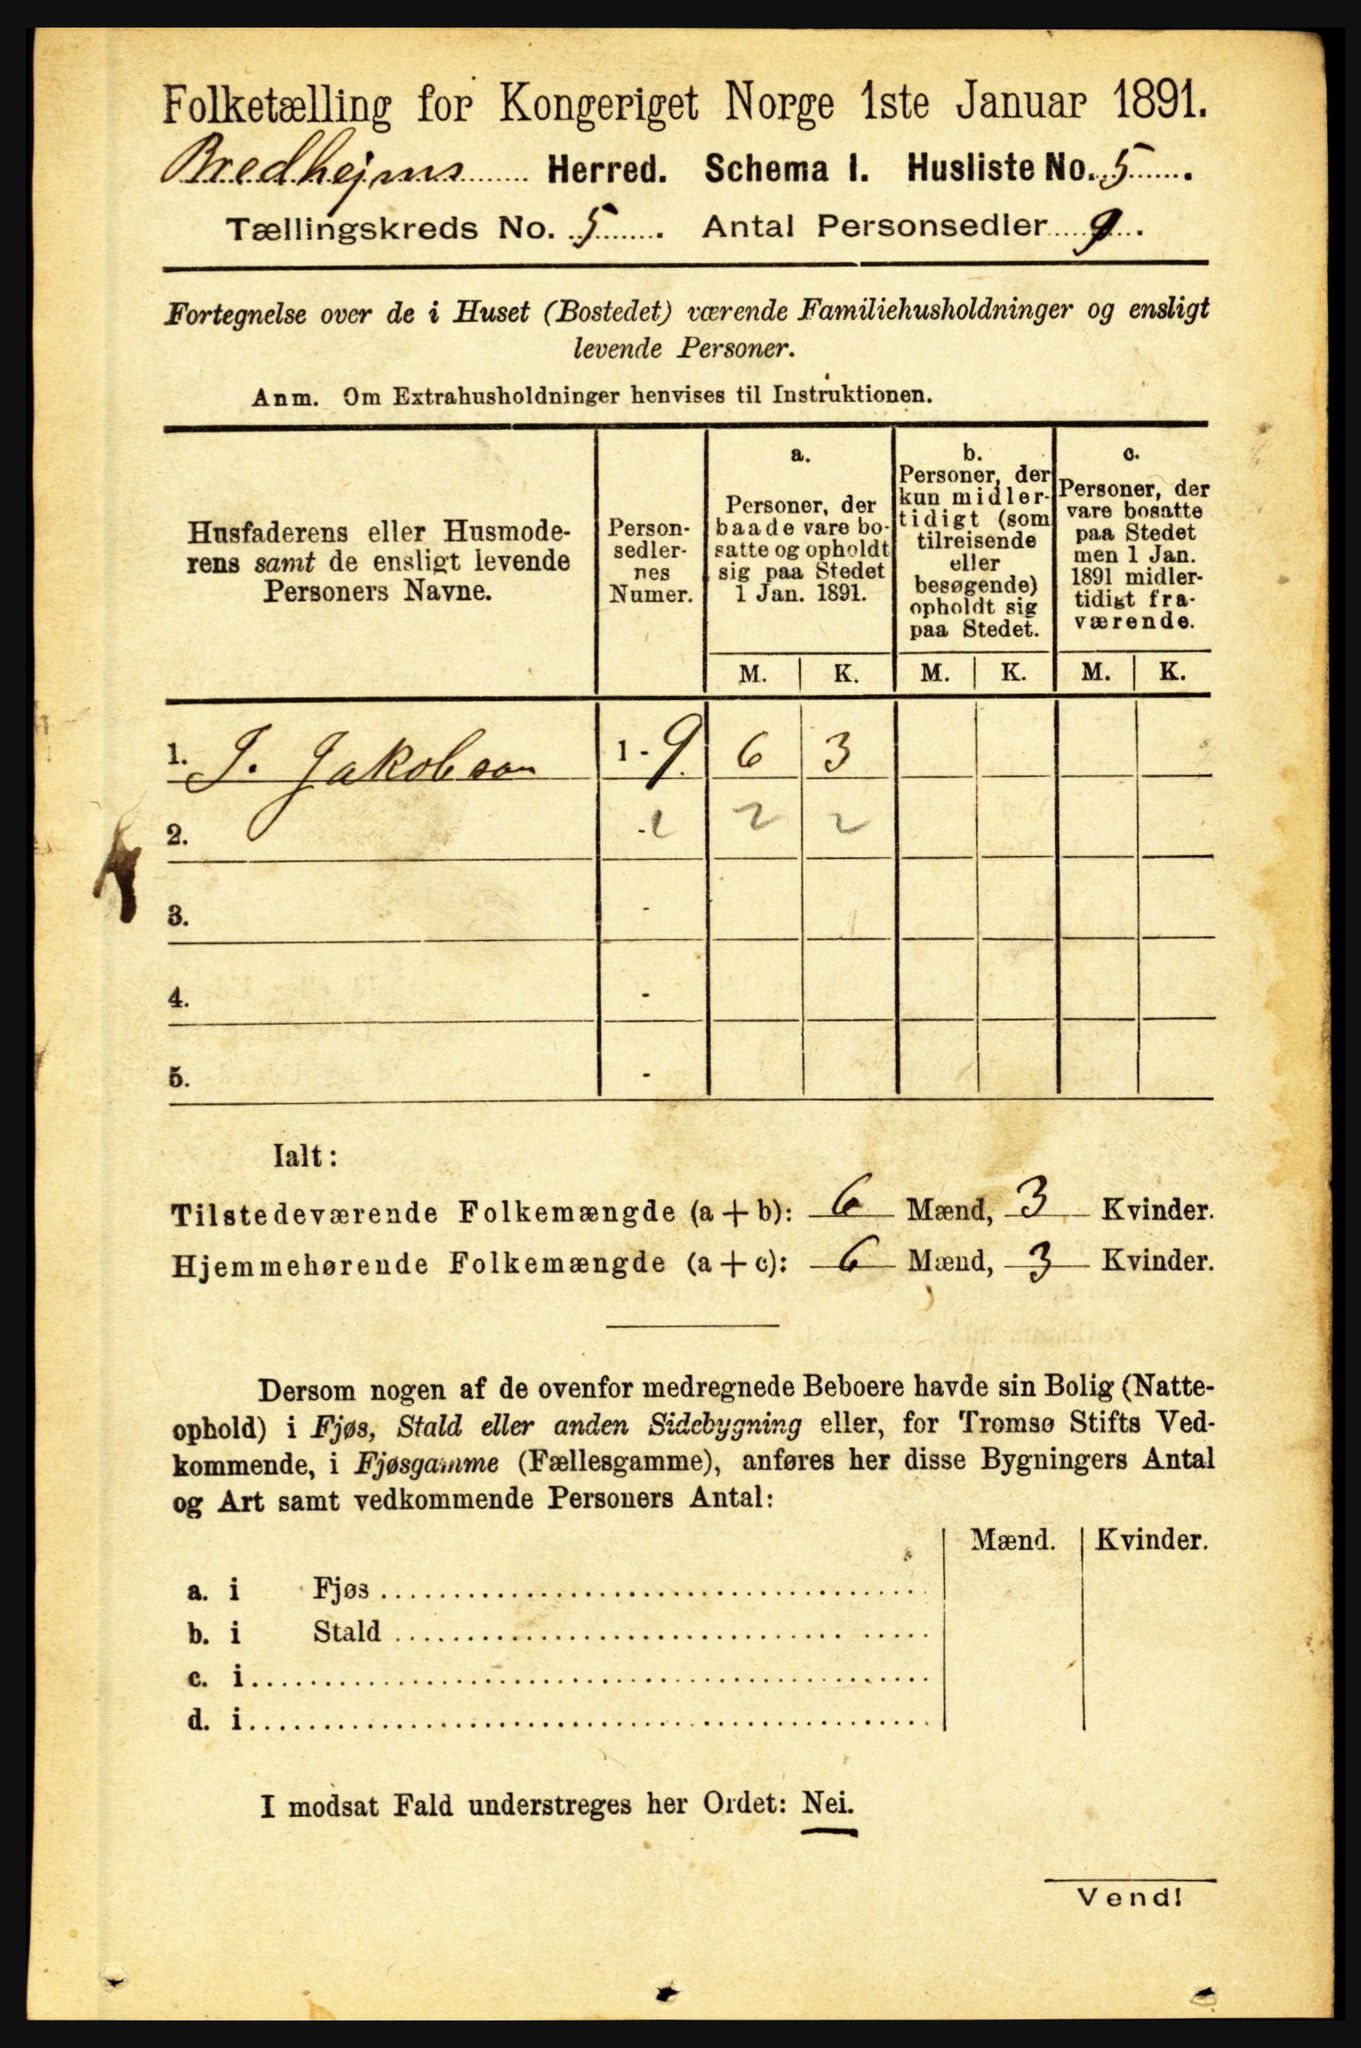 Folketælling for Kongeriget Norge 1ste Januar 1891.
Bredhejms Herred. Schema I. Husliste No. 5.
Tællingskreds No. 5. Antal Personsedler 9.
Fortegnelse over de i Huset (Bostedet) værende Familiehusholdninger og ensligt
levende Personer.
Anm. Om Extrahusholdninger henvises til Instruktionen.
Husfaderens eller Husmode-
rens samt de ensligt levende
Personers Navne.
Person-
sedler-
nes
Numer.
a.
Personer, der
baade vare bo-
satte og opholdt
sig paa Stedet
1 Jan. 1891.
b.
Personer, der
kun midler-
tidigt (som
tilreisende
eller
besøgende)
opholdt sig
paa Stedet.
c.
Personer, der
vare bosatte
paa Stedet
men 1 Jan.
1891 midler-
tidigt fra-
værende.
M. K. M. K. M. K.
1. J. Jakobson 1 - 9 6 3
2. - 2 2
3. -
4. -
5. -
Ialt:
Tilstedeværende Folkemængde (a + b): 6 Mænd, 3 Kvinder.
Hjemmehørende Folkemængde (a + c): 6 Mænd, 3 Kvinder.
Dersom nogen af de ovenfor medregnede Beboere havde sin Bolig (Natte-
ophold) i Fjøs, Stald eller anden Sidebygning eller, for Tromsø Stifts Ved-
kommende, i Fjøsgamme (Fællesgamme), anføres her disse Bygningers Antal
og Art samt vedkommende Personers Antal:
Mænd. Kvinder.
a. i Fjøs
b. i Stald
c. i
d. i
I modsat Fald understreges her Ordet: Nei.
Vend!